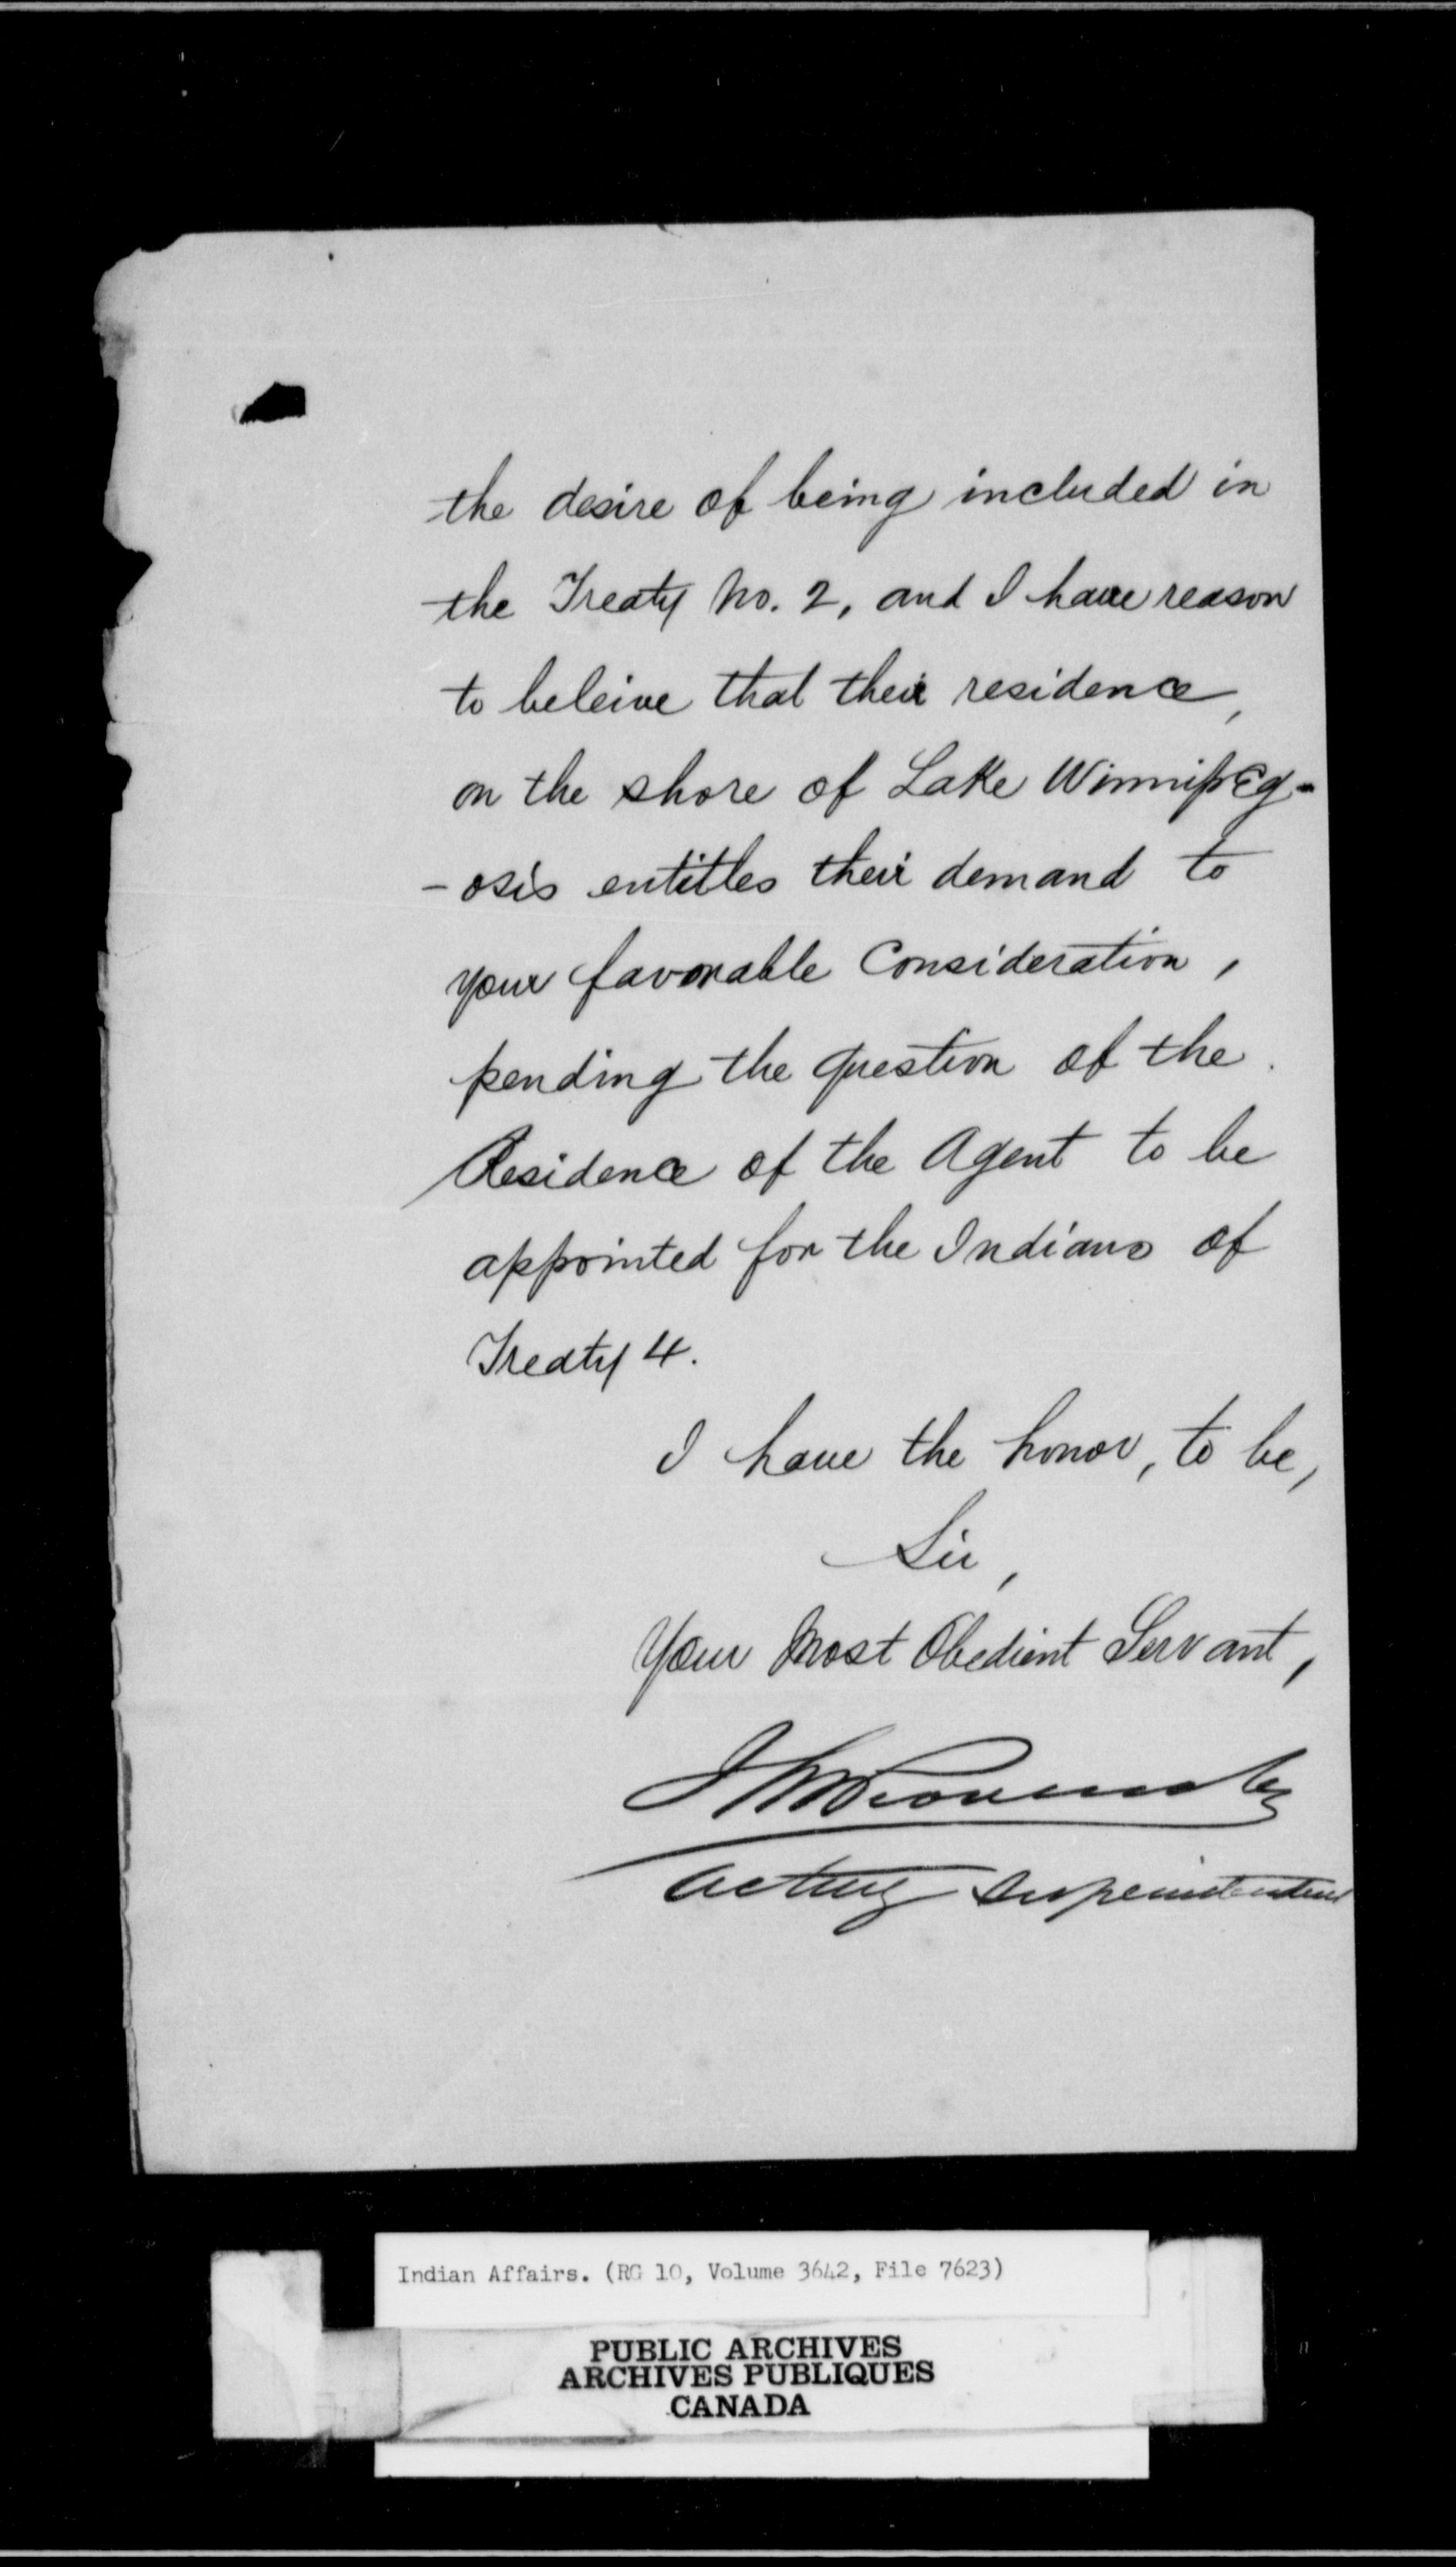 the desire of being included in
the Treaty No. 2, and I have reason
to beleive that their residence,
on the shore of Lake Winnipeg-
-osis entitles their demand to
your favorable Consideration,
pending the question of the
Residence of the Agent to be
appointed for the Indians of
Treaty 4.
I have the honor, to be,
Sir,
Your Most Obedient Servant,
J A N Provencher
Acting Superintendent
Indian Affairs. (RG 10, Volume 3642, File 7623)
PUBLIC ARCHIVES
ARCHIVES PUBLIQUES
CANADA